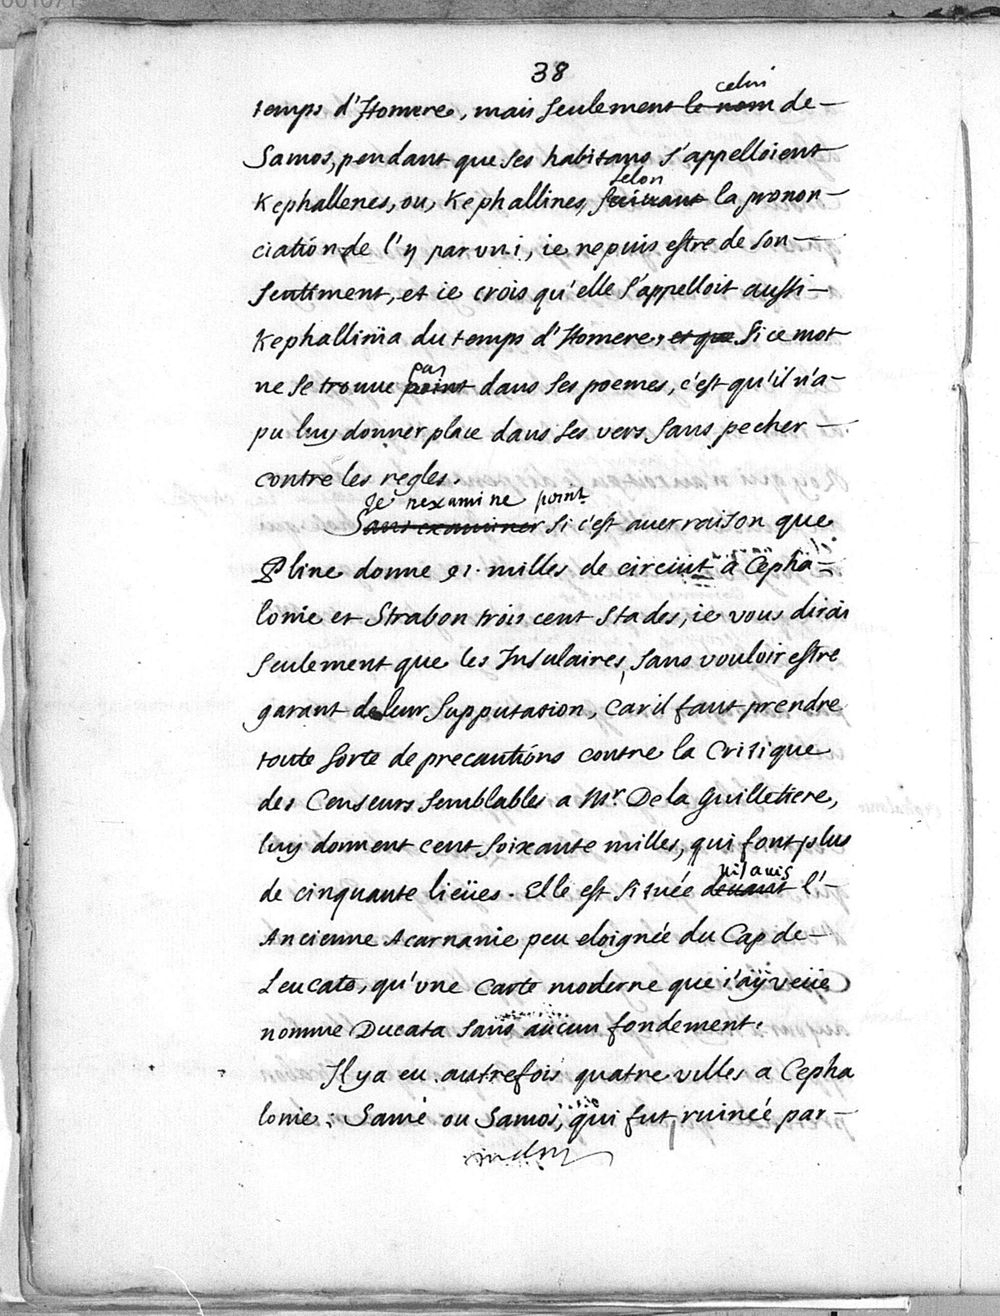 38
celui
temps d'Homere, mais seulement le nom de
Samos, pendant que ses habitans s'appelloient
selon
Kephallenes, ou, Kephallines, suivant la pronon-
ciation de l'η par vn i, ie ne puis estre de son
sentiment, et ie crois qu'elle s'appelloit aussi
Kephallinia du temps d'Homere, et que Si ce mot
pas
ne se trouue point dans ses poemes, c'est qu'il n'a
pu luy donner place dans ses vers sans pecher
contre les regles.
Je n'examine point
Sans examiner si c'est auec raison que
Pline donne 91. milles de circuit à Cepha-
lonie et Strabon trois cent stades, ie vous dirai
seulement que les Insulaires, sans vouloir estre
garant de leur supputation, car il faut prendre
toute sorte de precautions contre la Critique
des Censeurs semblables a Mr. De la Guilletiere,
luy donnent cent soixante milles, qui font plus
de cinquante lieües. Elle est située deuant l'-
uis a uis
Ancienne Acarnanie peu eloignée du Cap de
Leucate, qu'vne Carte moderne que i'aÿ veüe
nomme Ducata sans aucun fondement.
Il y a eu autrefois quatre villes a Cepha
lonie: Samé ou Samos, qui fut ruinée par